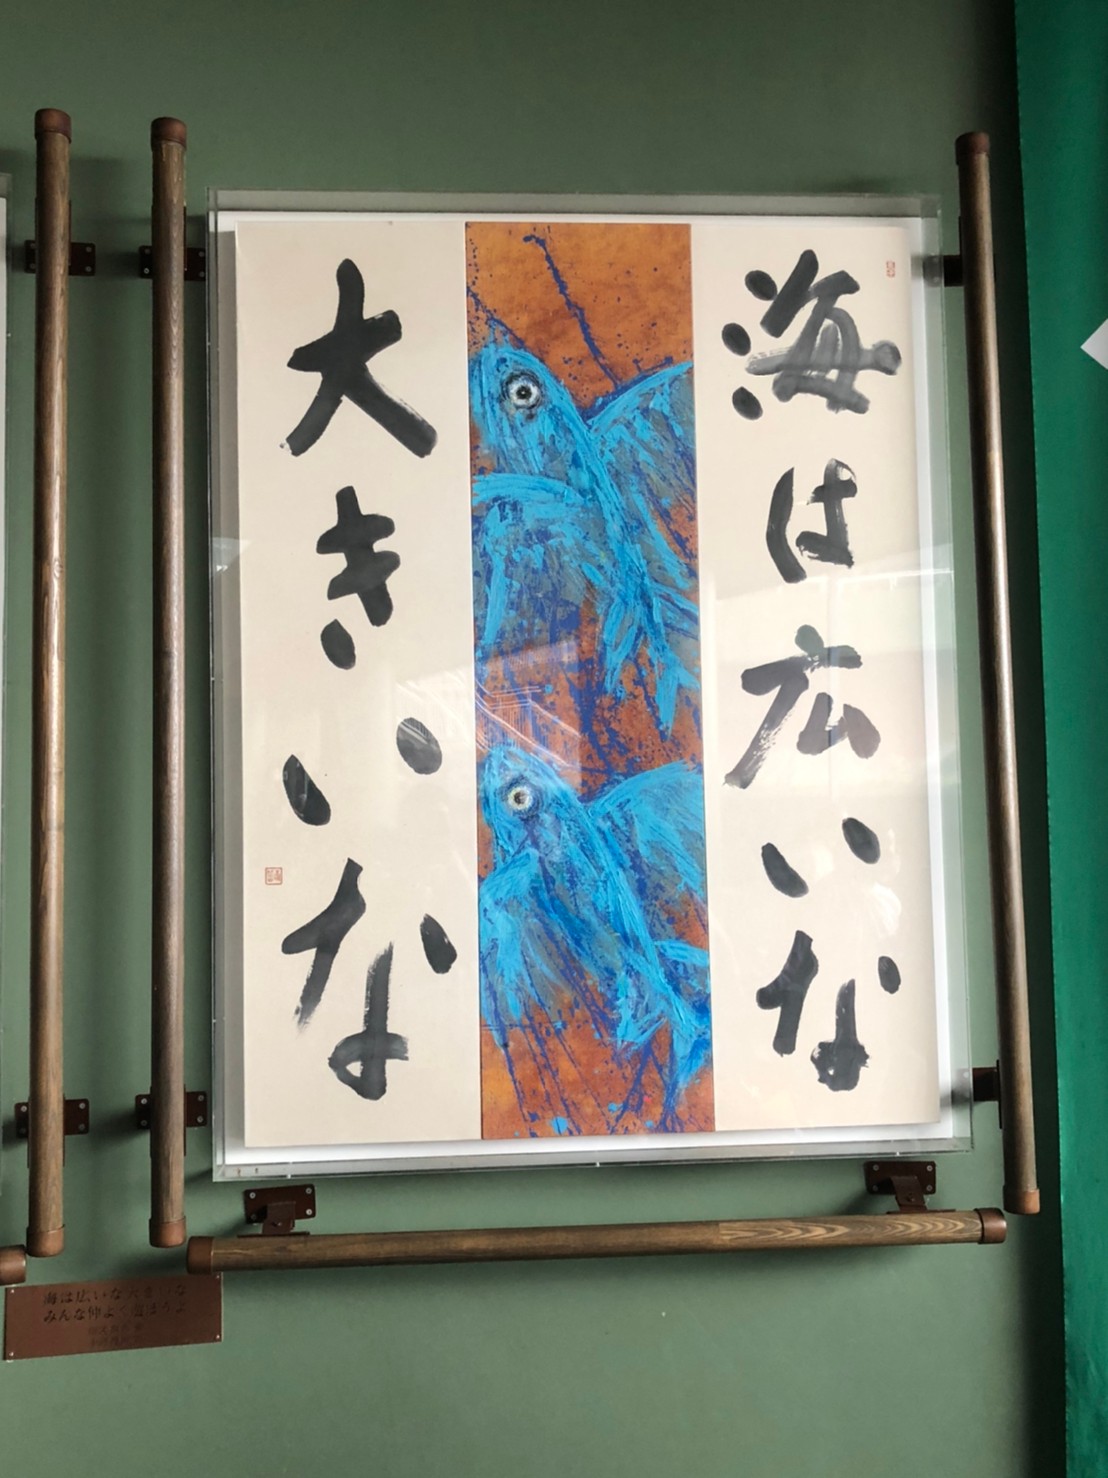 海は広いな
大きいな
海は広いな大きいな
みんな仲よく遊ぼうよ